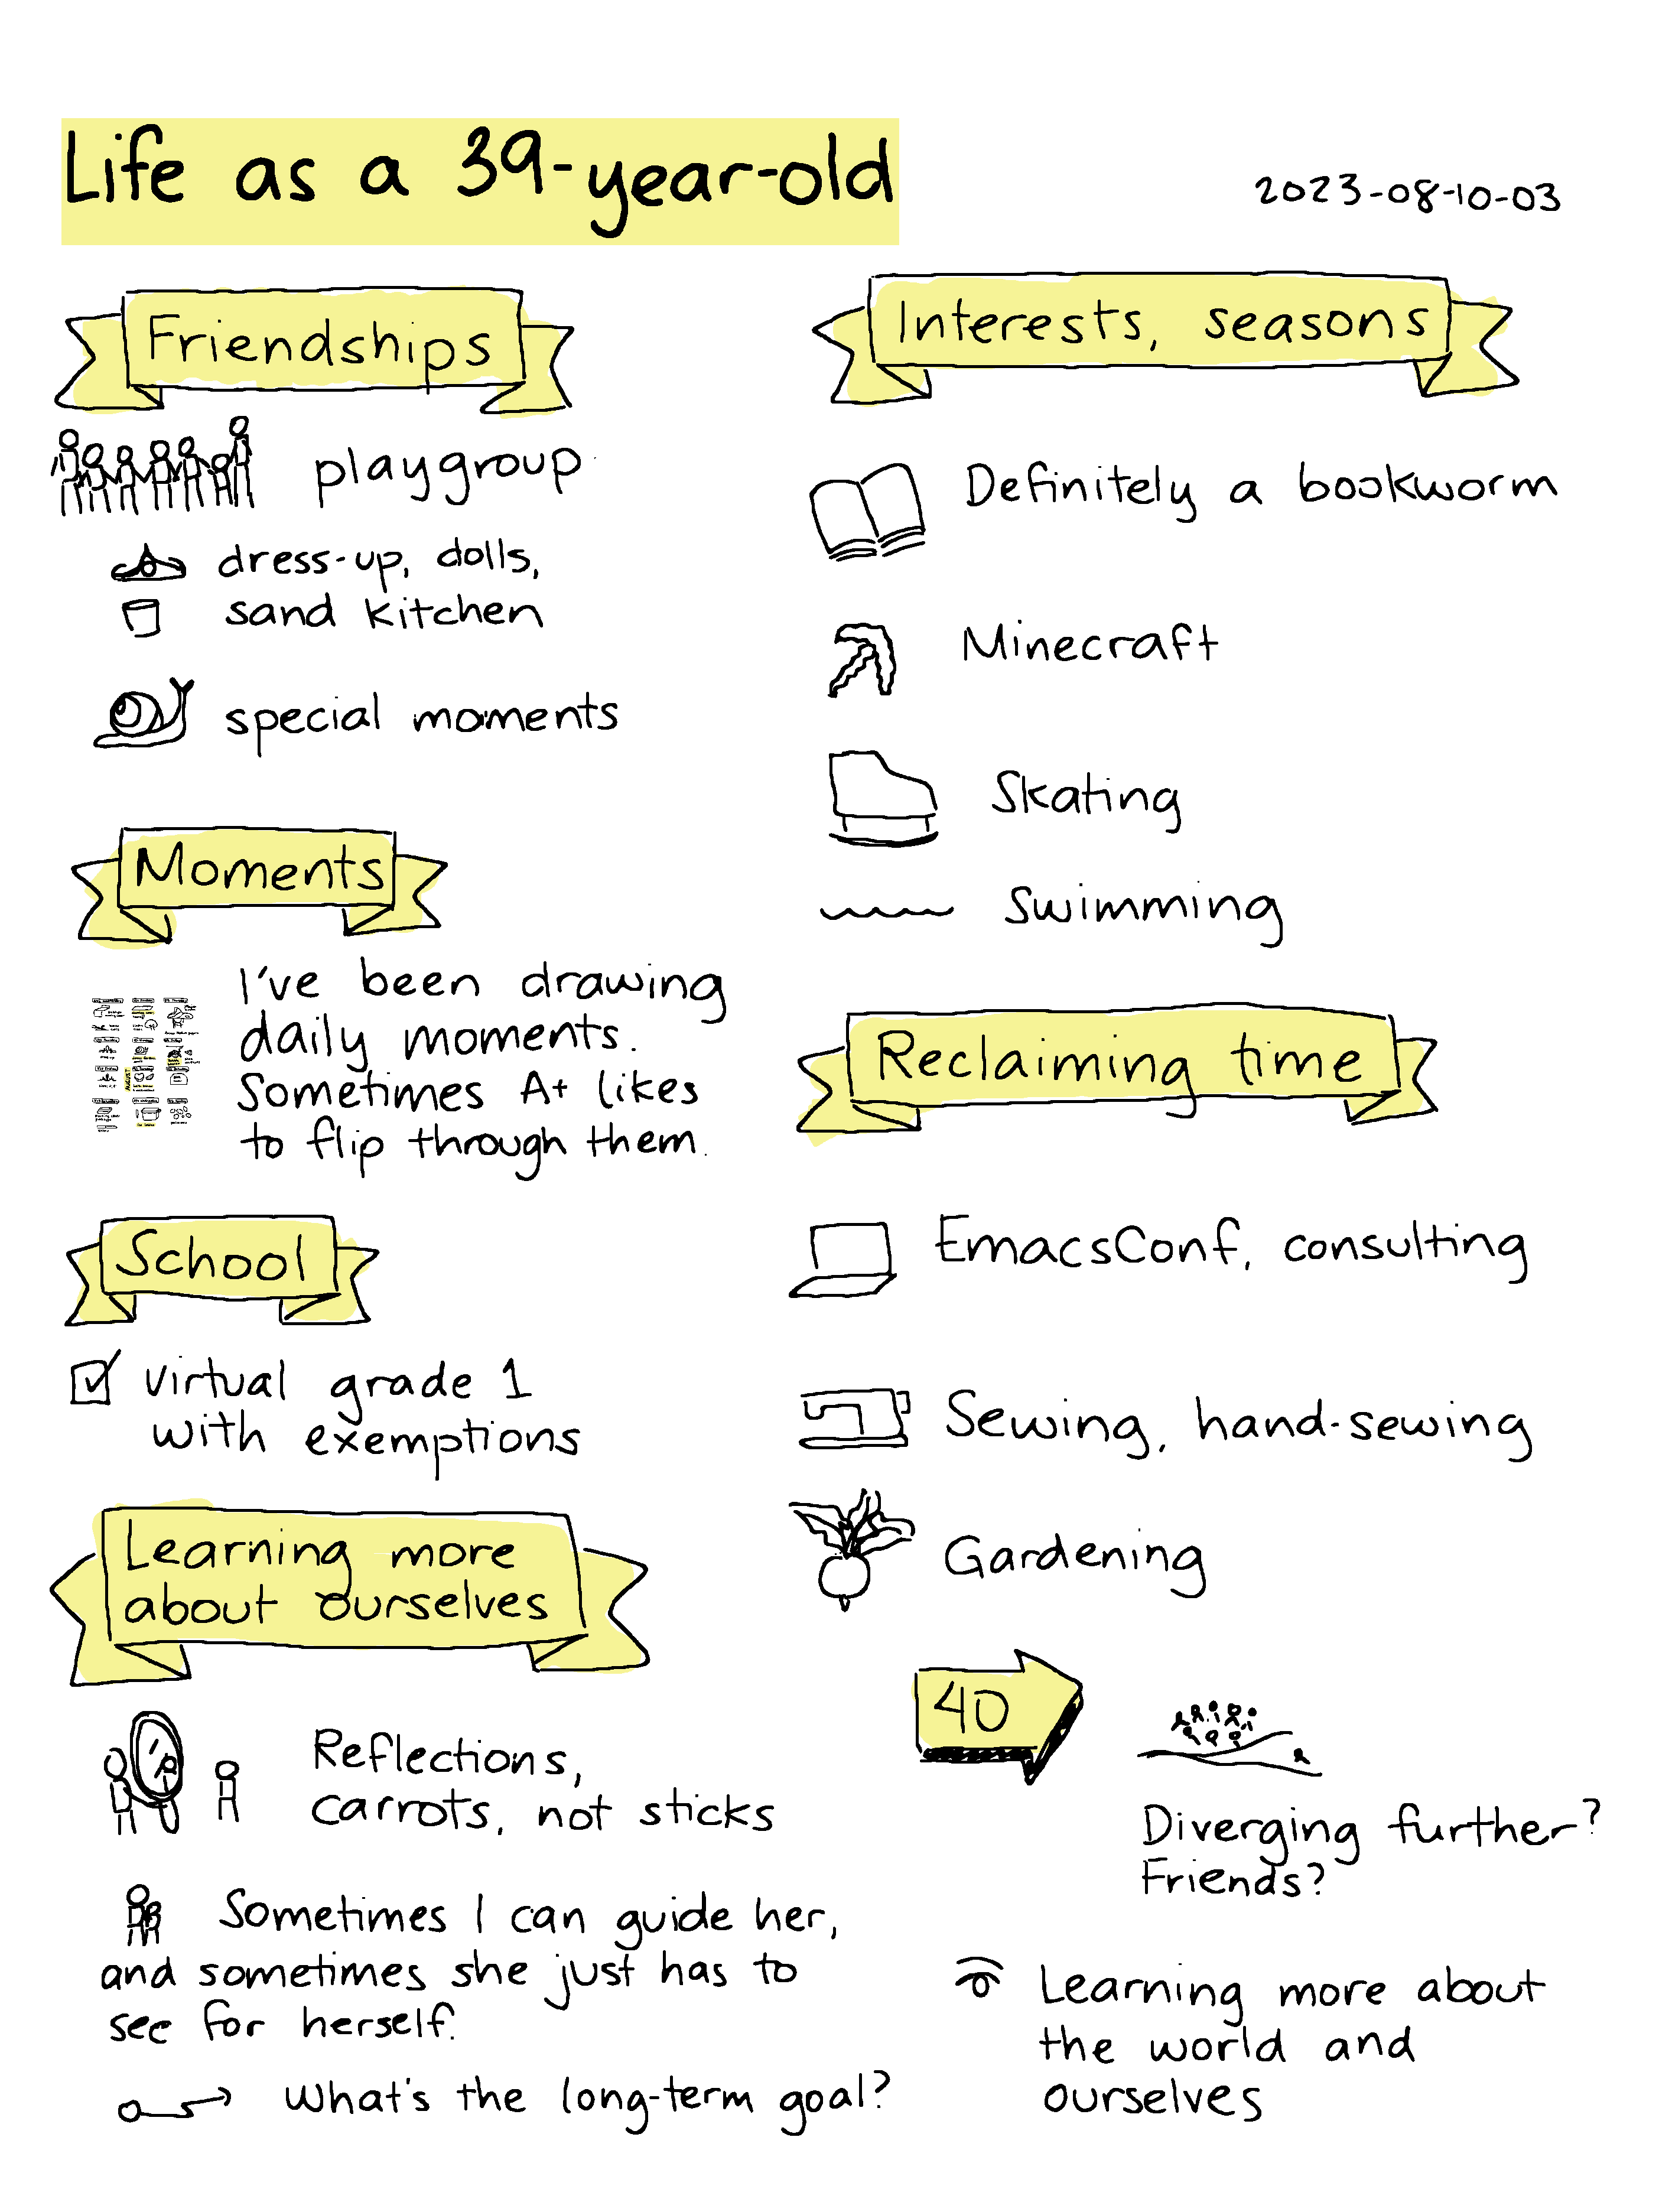 Life as a 39-year-old
2023-08-10-03
Friendships
playgroup
dress-up, dolls,
sand kitchen
special moments
Moments
I've been drawing
daily moments.
Sometimes A+ likes
to flip through them.
School
virtual grade 1
with exemptions
Learning more
about ourselves
Reflections,
carrots, not sticks
Sometimes I can guide her,
and sometimes she just has to
see for herself.
What's the long-term goal?
Interests, seasons
Definitely a bookworm
Minecraft
Skating
Swimming
Reclaiming time
EmacsConf, consulting
Sewing, hand-sewing
Gardening
40
Diverging further?
Friends?
Learning more about
the world and
ourselves